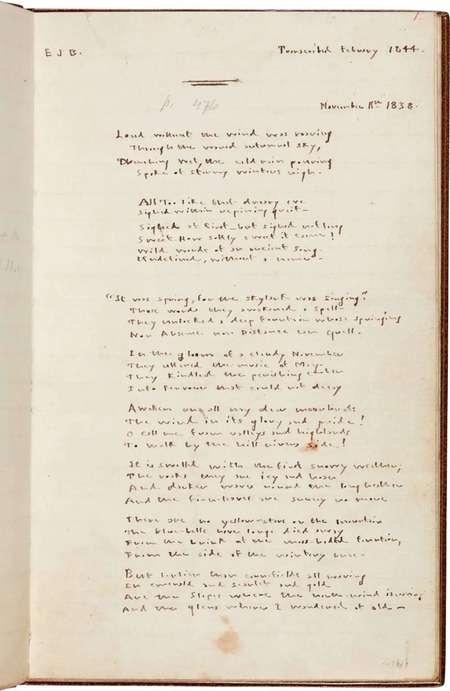 E J B. Transcribed Febuary 1844.
November 11th 1838.
Loud without the wind was roaring
Through the waned autumnal sky,
Drenching wet, the cold rain pouring
Spoke of stormy winters nigh.
All too like that dreary eve
Sighed within repining grief—
Sighed at first—but sighed not long
Sweet—How softly sweet it came!
Wild words of an ancient song—
Undefined, without a name—
"It was spring, for the skylark was singing."
Those words they awakened a spell—
They unlocked a deep fountain whose springing
Nor Absence nor Distance can quell.
In the gloom of a cloudy November
They uttered the music of May—
They kindled the perishing ember
Into fervour that could not decay
Awaken on all my dear moorlands
The wind in its glory and pride!
O call me from valleys and highlands
To walk by the hill-rivers side!
It is swelled with the first snowy weather;
The rocks they are icy and hoar
And darker waves round the long heather
And the fern-leaves are sunny no more
There are no yellow-stars on the mountain
The blue-bells have long died away
From the brink of the moss-bedded fountain,
From the side of the wintery brae—
But lovlier than corn-fields all waving
In emerald and scarlet and gold
Are the slopes where the north-wind is raving
And the glens where I wandered of old—